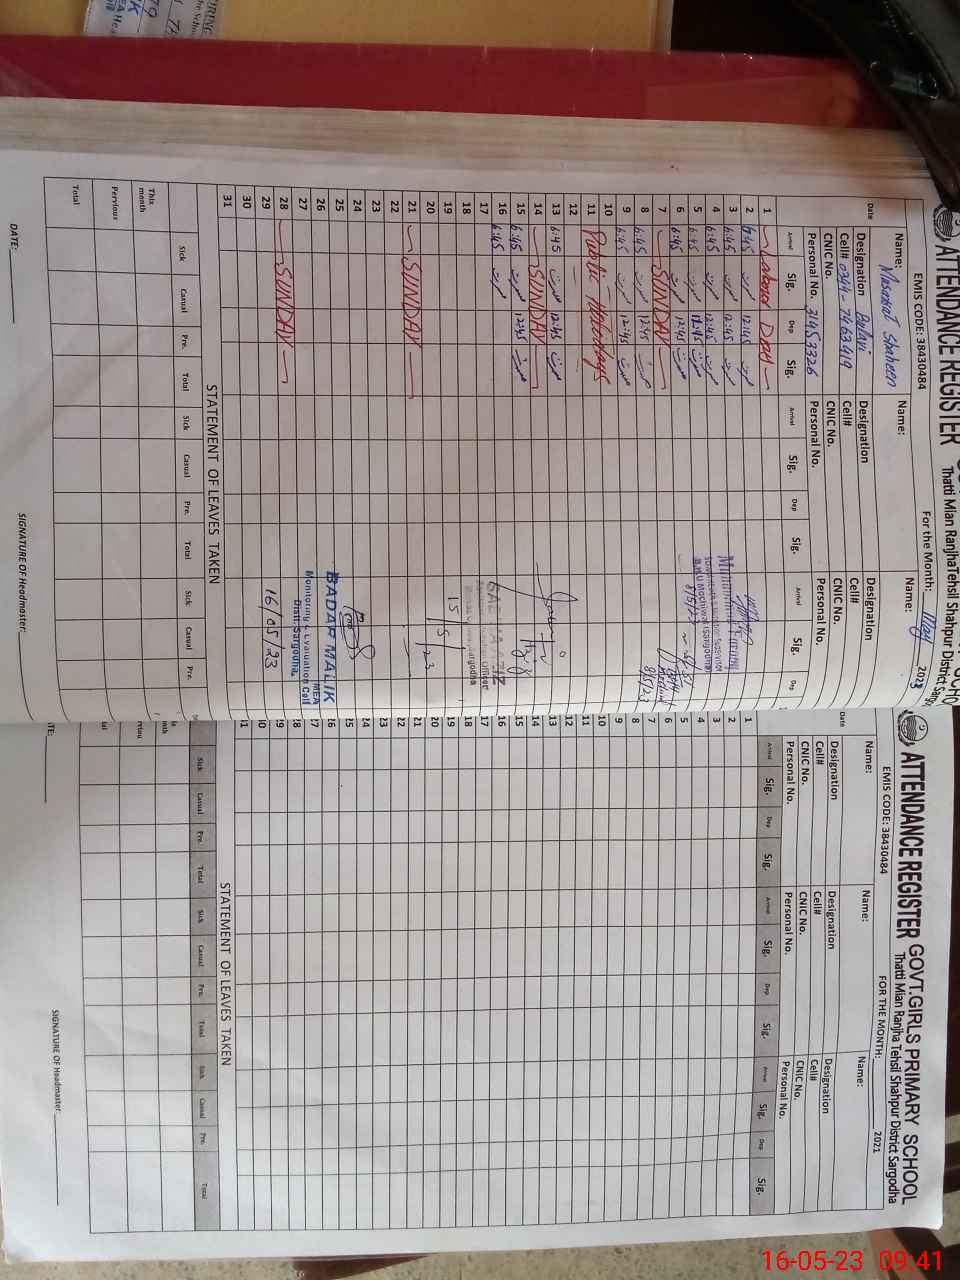 ATTENDANCE REGISTER
Thatti Mian Ranjha Tehsil Shahpur District Sarg
EMIS CODE: 38430484
For the Month: May 2023
Name: Masarat Shaheen
Name:
Name:
Designation Balavi
Designation
Designation
Cell# 0344-7463419
Cell#
Cell#
CNIC No.
CNIC No.
CNIC No.
Personal No. 31453326
Personal No.
Personal No.
Date
Arrival Sig. Dep Sig. Arrival Sig. Dep Sig. Arrival Sig. Dep
1 Labour Day
2 6:45 12:45
3 6:45 12:45
4 6:45 12:45
5 6:45 12:45
6 6:45 12:45
7 SUNDAY
8 6:45 12:45
9 6:45 12:45
10
11 Public Holidays
12
13 6:45 12:45
14 SUNDAY
15 6:45 12:45
16 6:45
17
18
19
20
21 SUNDAY
22
23
24
25
26
27
28 SUNDAY
29
30
31
8/5/23
8/5/23
15/5/23
BADAR MALIK
MEA
Monitoring & Evaluation Cell
Distt. Sargodha.
16/05/23
STATEMENT OF LEAVES TAKEN
Sick Casual Pre. Total Sick Casual Pre. Total Sick Casual Pre.
This month
Pervious
Total
DATE:
SIGNATURE OF Headmaster:
ATTENDANCE REGISTER GOVT.GIRLS PRIMARY SCHOOL
Thatti Mian Ranjha Tehsil Shahpur District Sargodha
EMIS CODE: 38430484
FOR THE MONTH: 2021
Name:
Name:
Name:
Designation
Designation
Designation
Cell#
Cell#
Cell#
CNIC No.
CNIC No.
CNIC No.
Personal No.
Personal No.
Personal No.
Date
Arrival Sig. Dep Sig. Arrival Sig. Dep Sig. Arrival Sig. Dep Sig.
1
2
3
4
5
6
7
8
9
10
11
12
13
14
15
16
17
18
19
20
21
22
23
24
25
26
27
28
29
30
31
STATEMENT OF LEAVES TAKEN
Sick Casual Pre. Total Sick Casual Pre. Total Sick Casual Pre. Total
SIGNATURE OF Headmaster:
16-05-23 09:41